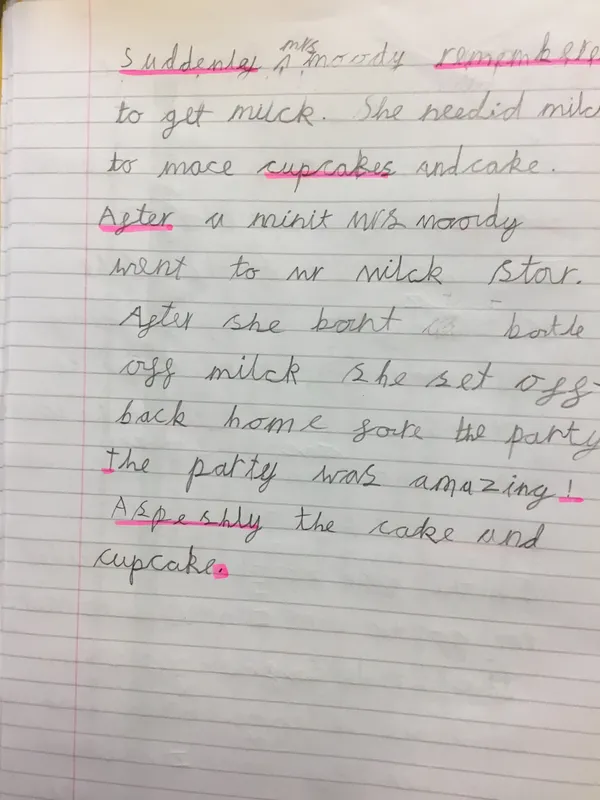 suddenly mrs moody remembere
to get milck. She needid milc
to mace cupcakes and cake.
After a minit Mrs moody
went to mr milck stor.
After she boht botle
off milck she set off
back home fore the party
the party was amazing!
Aspeshly the cake and
cupcake.